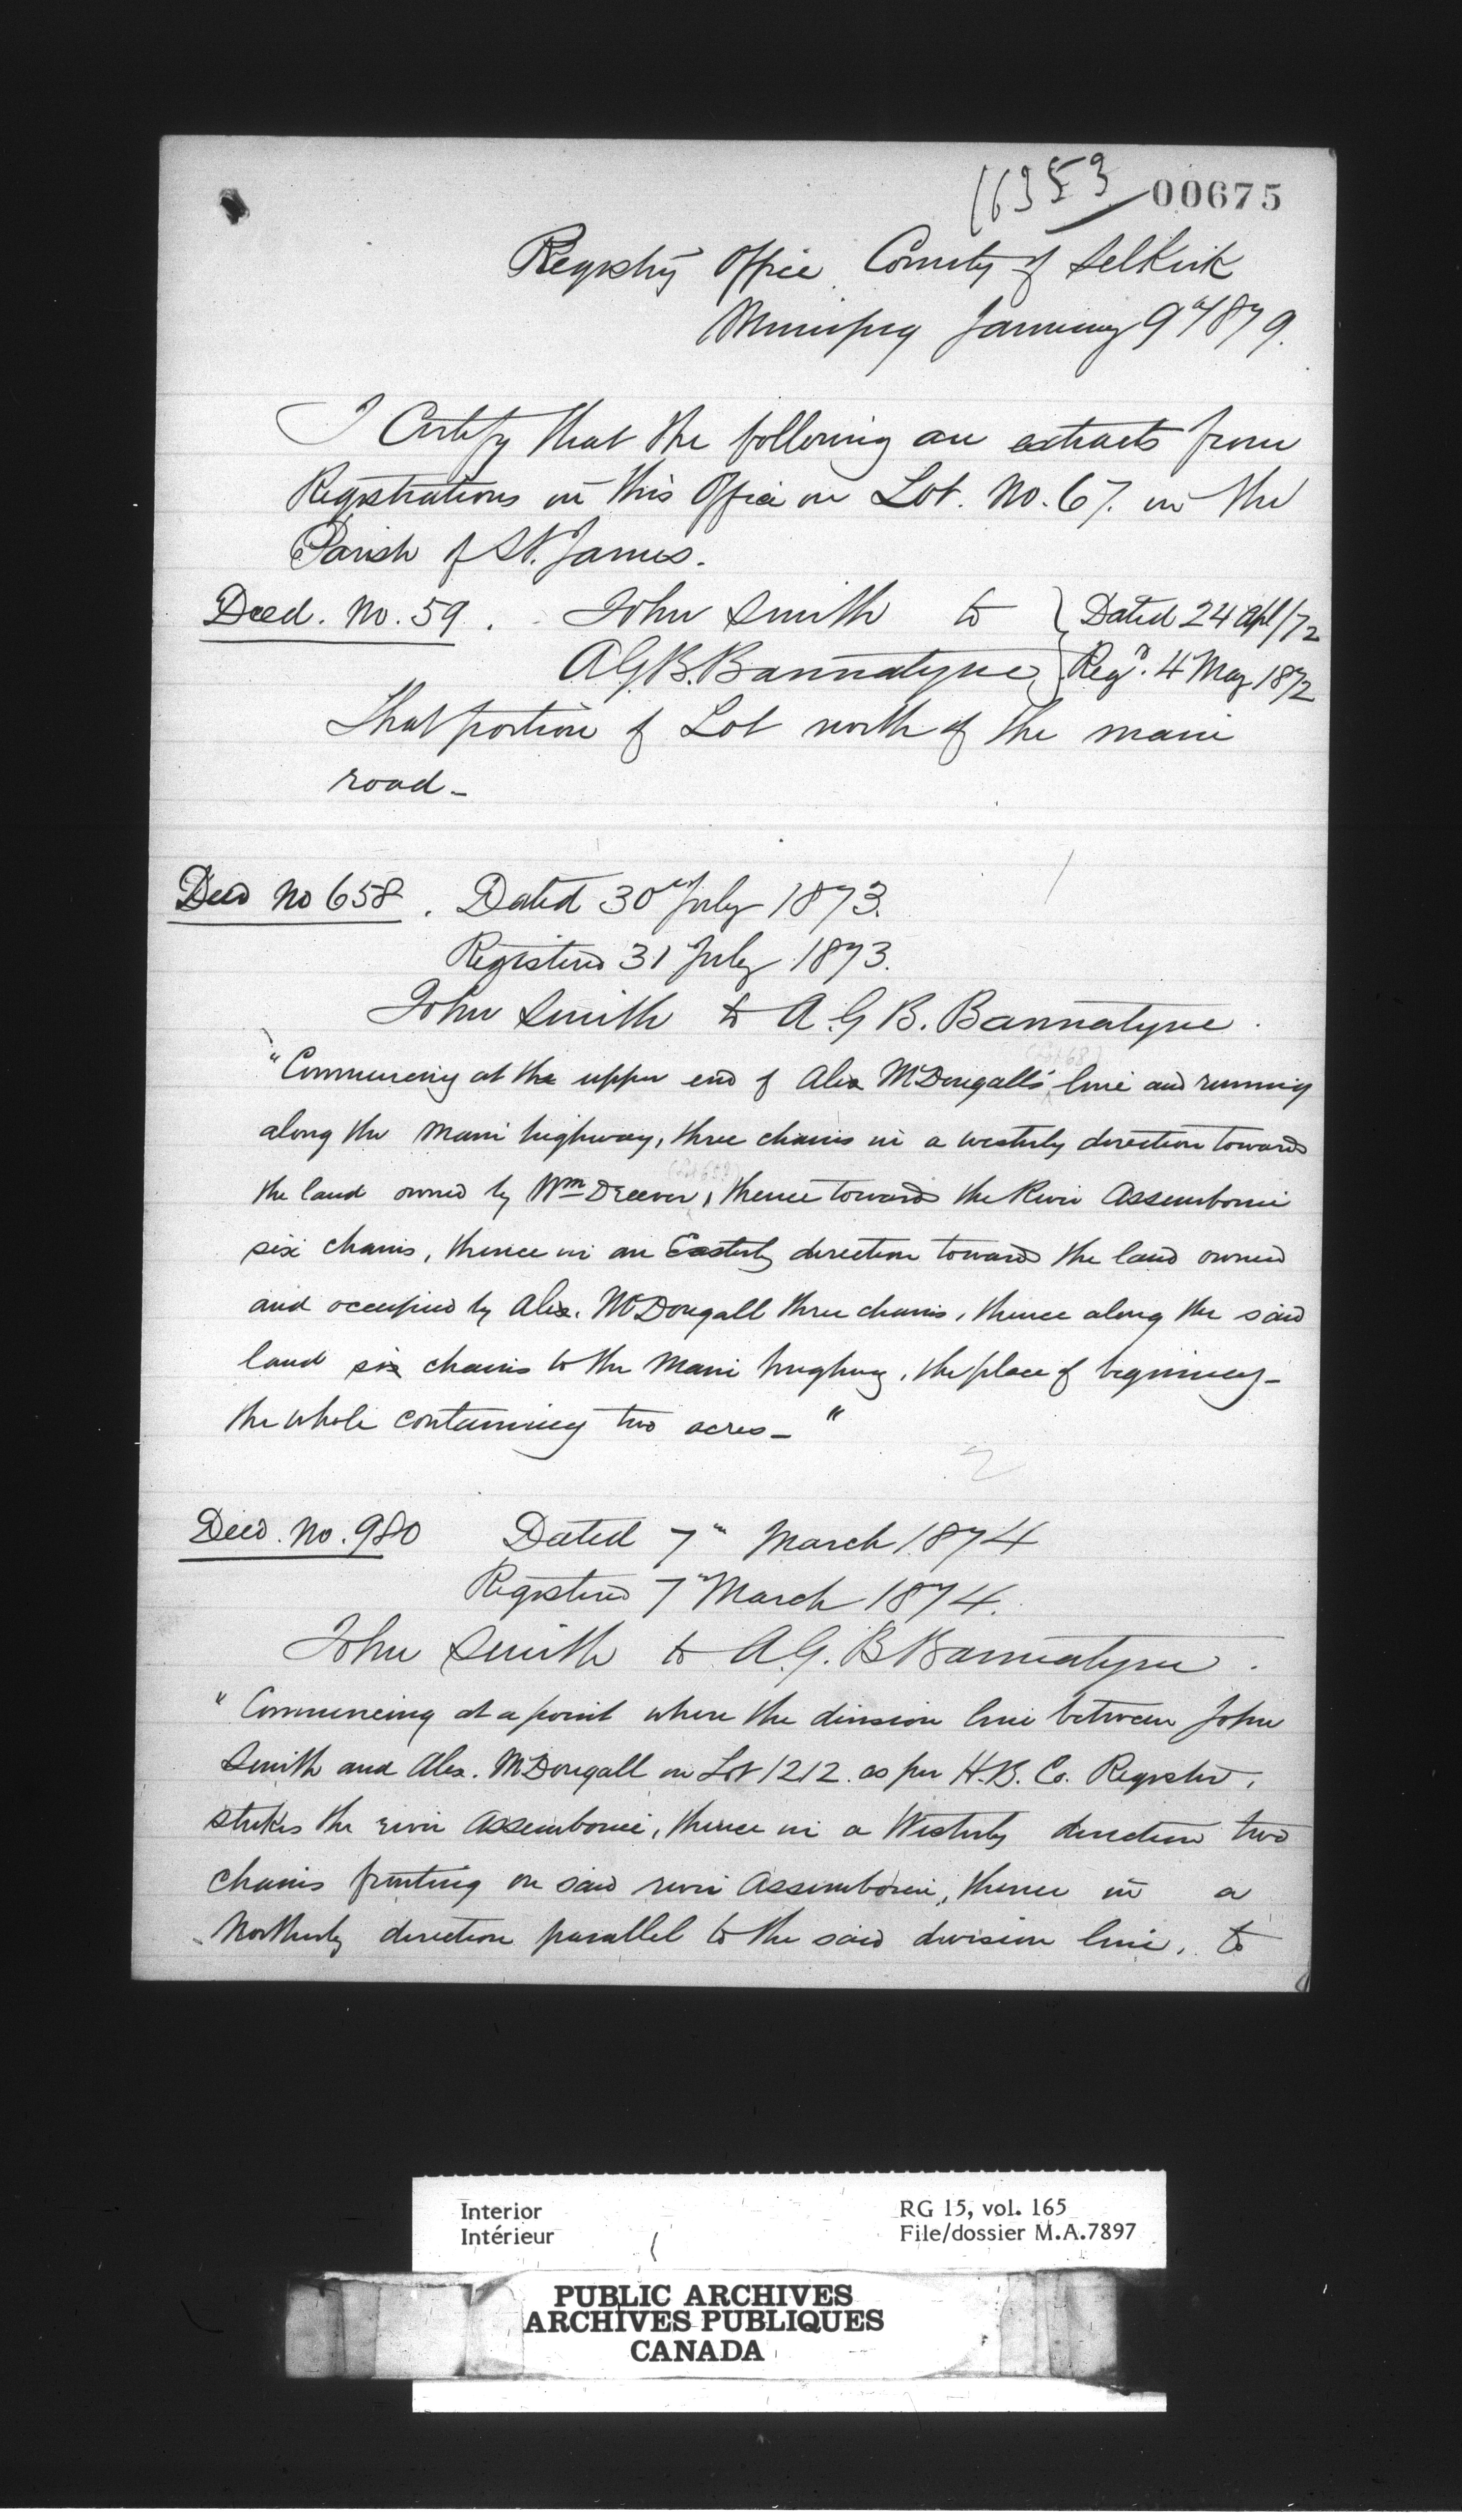 16353 00675
Registry Office County of Selkirk
Winnipeg January 9th 1879.
I Certify that the following are extracts from
Registrations in this Office on Lot. No. 67. in the
Parish of St. James.
Deed. No. 59. John Smith to } Dated 24 Apl/72
A.G.B. Bannatyne } Regd. 4 May 1872
That portion of Lot north of the main
road_
1
Deed No 658. Dated 30th July 1873.
Registered 31 July 1873.
John Smith to A.G.B. Bannatyne.
"Commencing at the upper end of Alex McDougall's line and running
along the main highway, three chains in a westerly direction towards
the land owned by Wm Dreever, thence towards the River Assiniboine
six chains, thence in an Easterly direction towards the land owned
and occupied by Alex. McDougall three chains, thence along the said
land six chains to the main highway, the place of beginning_
the whole containing two acres_"
2
Deed. No. 980 Dated 7th March 1874
Registered 7th March 1874.
John Smith to A.G.B Bannatyne.
"Commencing at a point where the division line between John
Smith and Alex. McDougall on Lot 1212. as per H.B. Co. Register,
strikes the river Assiniboine, thence in a Westerly direction two
chains fronting on said river Assiniboine, thence in a
Northerly direction parallel to the said division line, to
Interior RG 15, vol. 165
Intérieur File/dossier M.A.7897
PUBLIC ARCHIVES
ARCHIVES PUBLIQUES
CANADA